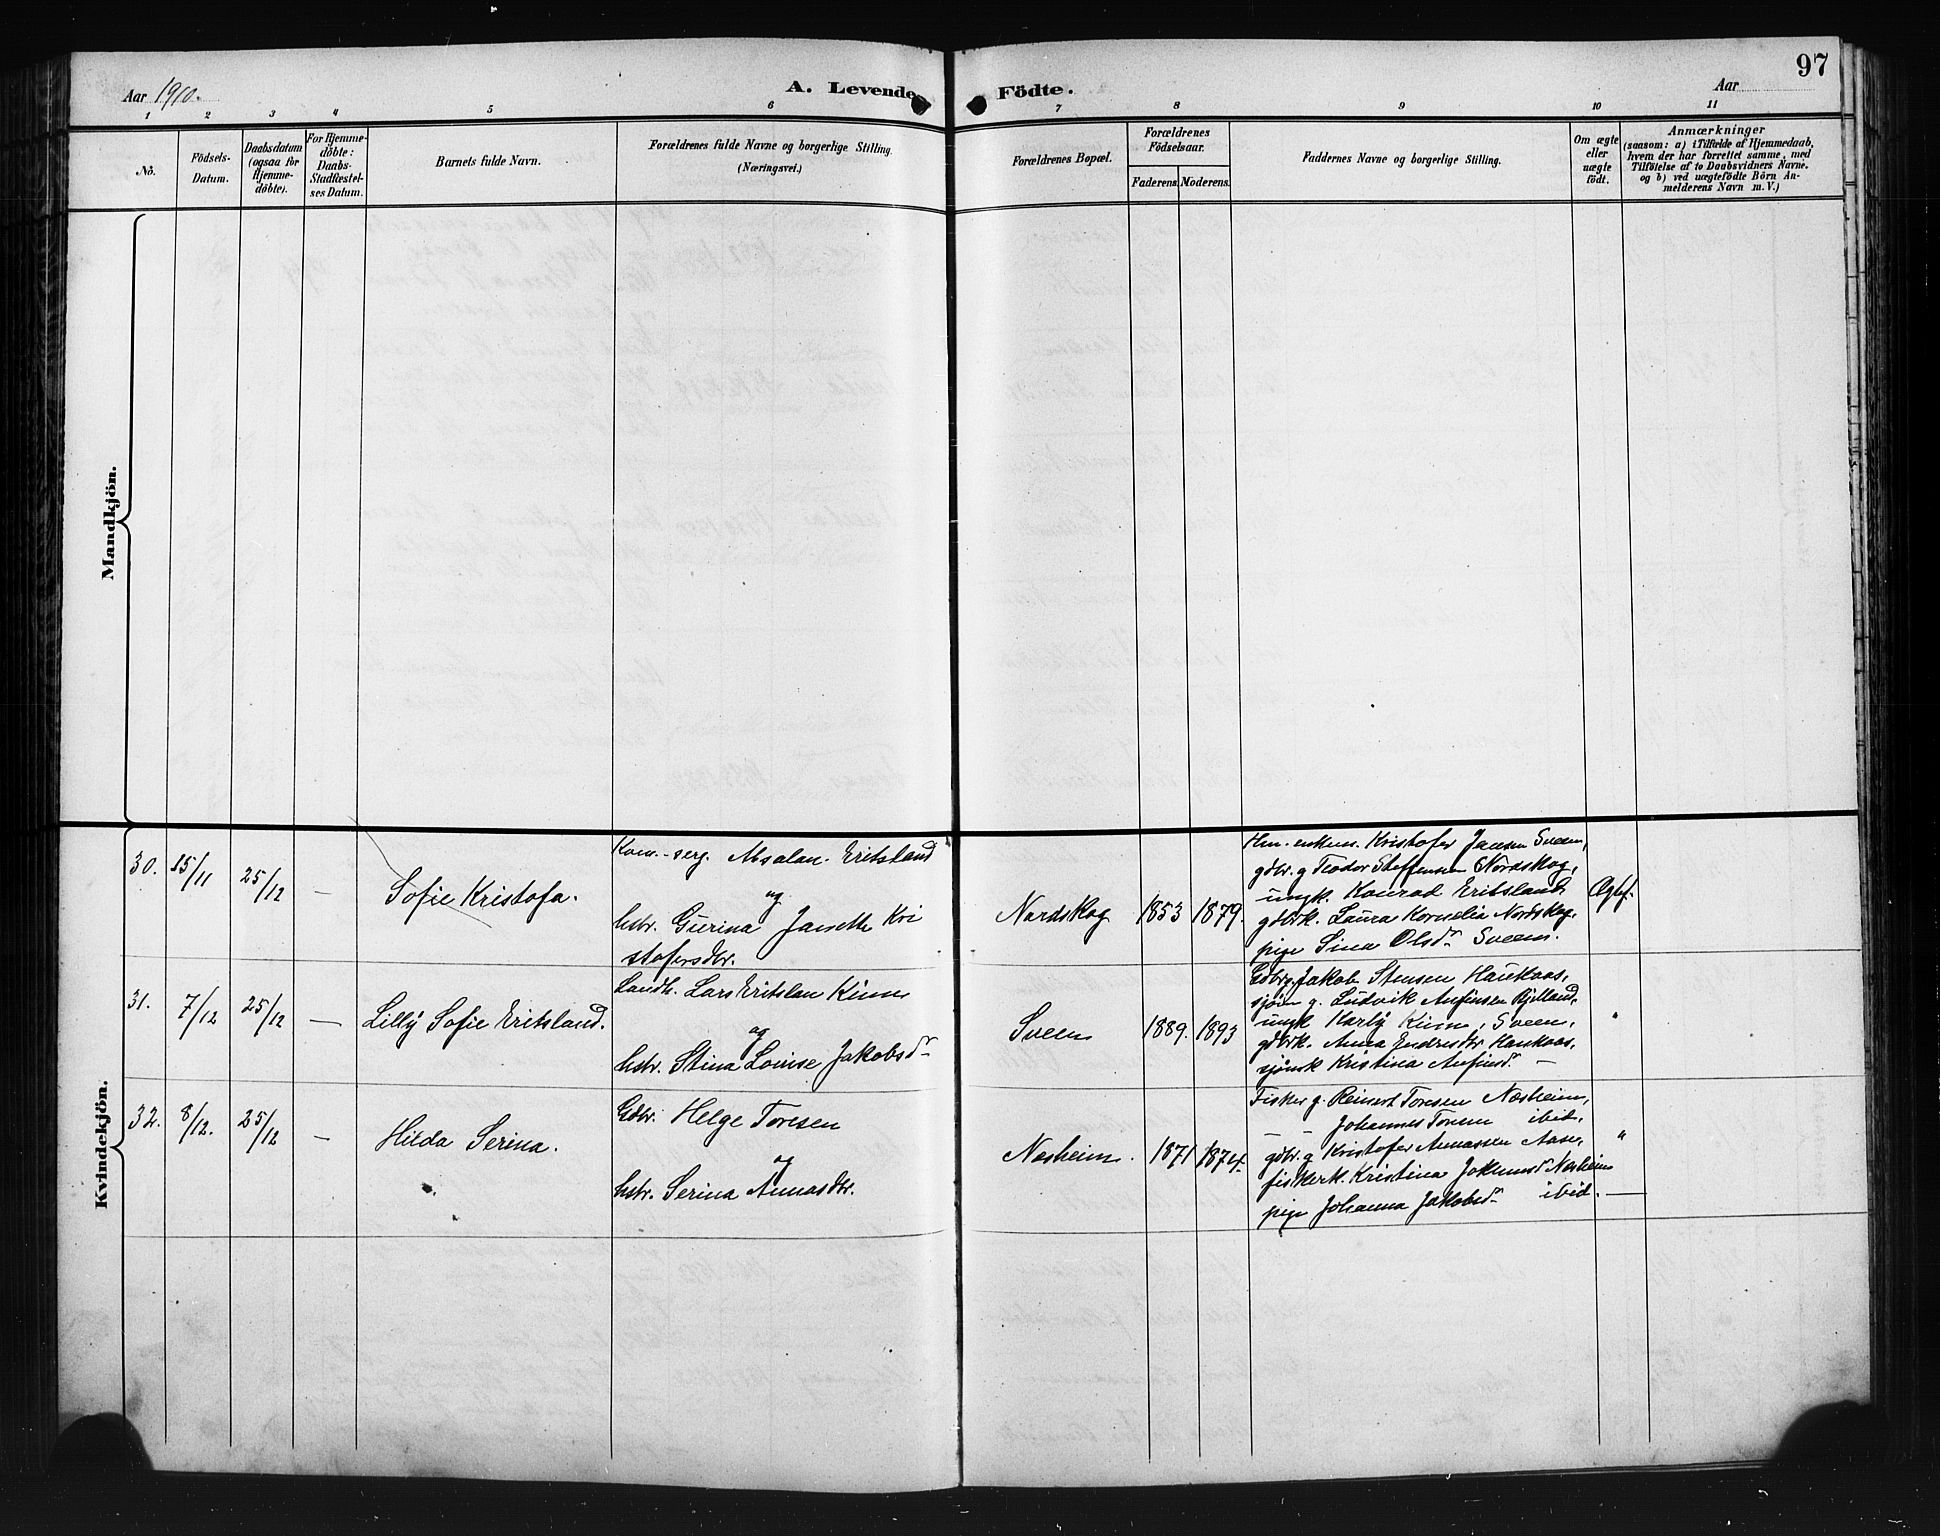 97
Aar 1910.
A. Levende Födte.
Aar
1 2 3 4 5 6 7 8 9 10 11
No.
Födsels-
Datum.
Daabsdatum
(ogsaa for
Hjemme-
döbte).
For Hjemme-
döbte:
Daabs-
Stadfæstel-
ses Datum.
Barnets fulde Navn.
Forældrenes fulde Navne og borgerlige Stilling.
(Næringsvei.)
Forældrenes Bopæl.
Forældrenes
Födselsaar.
Faderens. Moderens.
Faddernes Navne og borgerlige Stilling.
Om ægte
eller
uægte
födt.
Anmærkninger
(saasom: a) i Tilfælde af Hjemmedaab,
hvem der har forrettet samme, med
Tilföielse af to Daabsvidners Navne.
og b) ved uægtefödte Börn An-
melderens Navn m. V.)
Mandkjön.
Kvindekjön.
30. 15/11 25/12 —
Sofie Kristofa.
Kom.-serg. Absalon Eritsland
og
hstr. Gurina Janette Kri
stofersdtr.
Nordskog 1853 1879.
Kristofer Jansen Sveen,
gdbr. g Teodor Steffensen Nordskog,
ungk. Konrad Eritsland,
gdbrk. Laura Kornelia Nordskog.
pige Sina Olsdr Sveen.
Ægtef.
31. 7/12 25/12 —
Lilly Sofie Eritsland.
Landh. Lars Eritslan Kinn
og
hstr. Stina Louise Jakobsdr
Sveen 1889. 1893
Gdbrg. Jakob Stensen Haukaas,
g. Ludvik Anfinsen Kjelland,
ungk Karly Kinn, Sveen,
gdbrk. Anna Endresdtr Haukaas,
Kristina Anfinsd. —
"
32. 8/12. 25/12 —
Hilda Serina.
Gdbr. Helge Toresen
og
hstr. Serina Aunasdtr.
Næsheim. 1871 1874.
Fisker g. Reinert Toresen Næsheim,
— Johannes Toresen ibid.
gdbr. g Kristofer Aunassen Aase,
fiskerk. Kristina Næsheim
pige Johanna Jakobsdr ibid. —
"